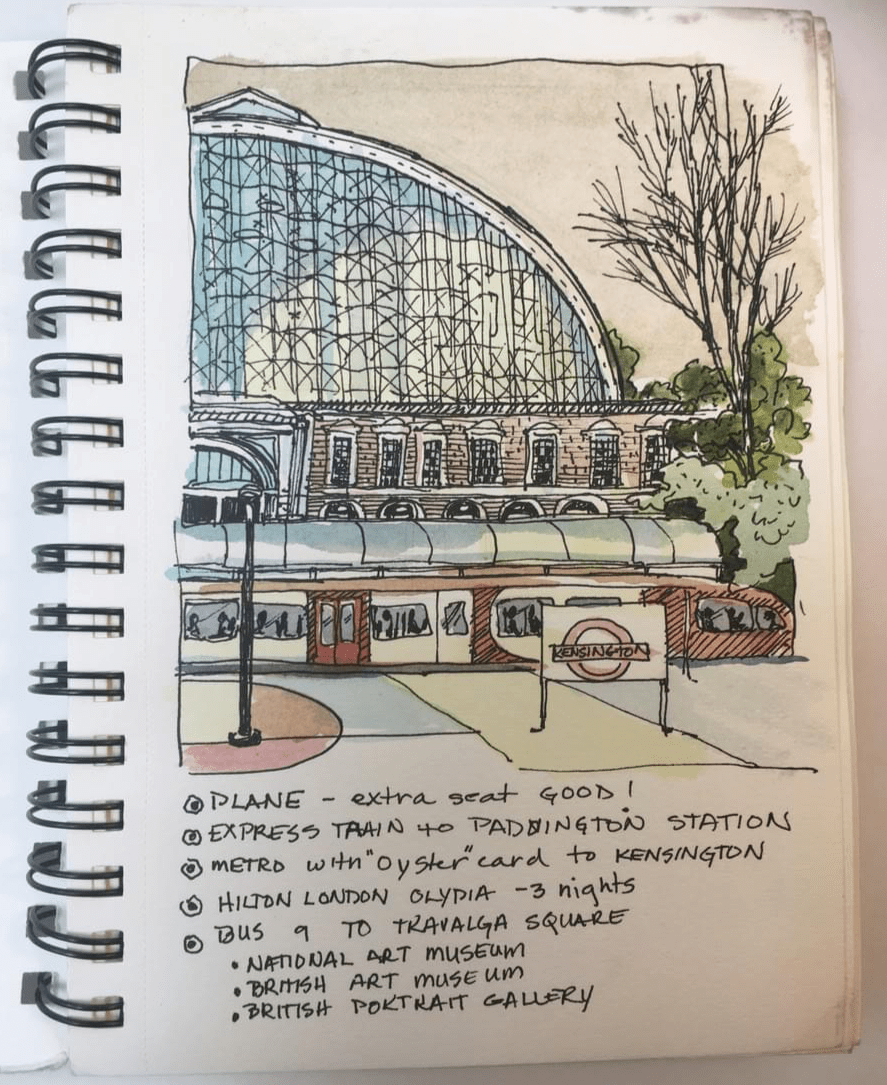 KENSINGTON
PLANE - extra seat GOOD!
EXPRESS TRAIN to PADDINGTON STATION
METRO with "Oyster" card to KENSINGTON
HILTON LONDON OLYDIA - 3 nights
BUS 9 TO TRAVALGA SQUARE
• NATIONAL ART MUSEUM
• BRITISH ART MUSEUM
• BRITISH PORTRAIT GALLERY